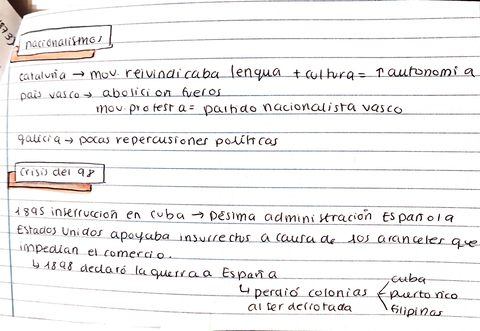 1873)
nacionalismos
cataluña → mov. reivindicaba lengua + cultura = ↑ autonomia
pais vasco → abolicion fueros
mov. protesta = partido nacionalista vasco
galicia → pocas repercusiones políticas
crisis del 98
1895 insercucción en cuba → pésima administración Española
Estados Unidos apoyaba insurrectos a causa de los aranceles que
impedían el comercio.
↳ 1898 declaró la guerra a España
↳ perdió colonias
al ser derrotada
cuba
puerto rico
filipinas